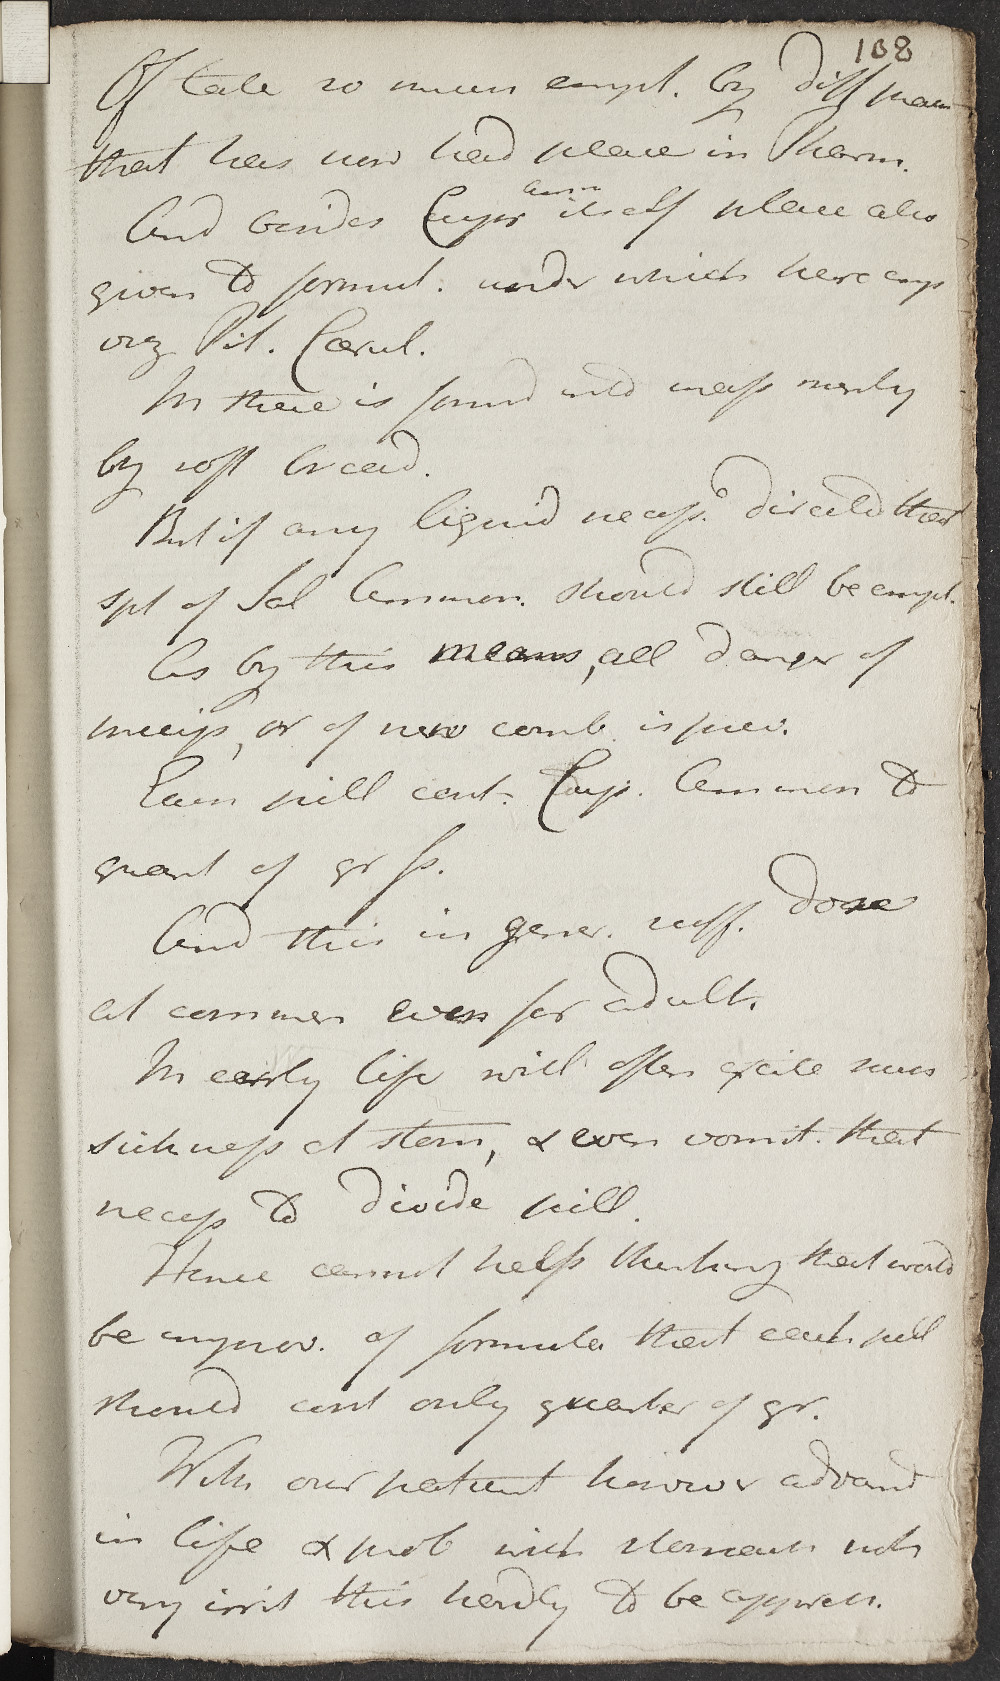 108
Of late so much empl. by diff pract
that has now had place in Pharm.
And besides Cupr amm itself place also
given to formul. under which here emp
viz Pil. Coerul.
In these is formd into mass merely
by soft bread.
But if any liquid necess. directed that
spt of Sal Ammon. should still be empl.
As by this means, all danger of
precip, or of new comb is prev.
Each pill cont. Cup. Ammon to
quant of gr ss.
And this in gener. suff. dose
at commen even for adult.
In early life will often excite such
sickness at stom, & even vomit. that
necess to divide pill.
Hence cannot help thinking that would
be improv. of formula that each pill
should cont only quarter of gr.
With our patient however advancd
in life & prob with stomach not
very irrit this hardly to be appreh.